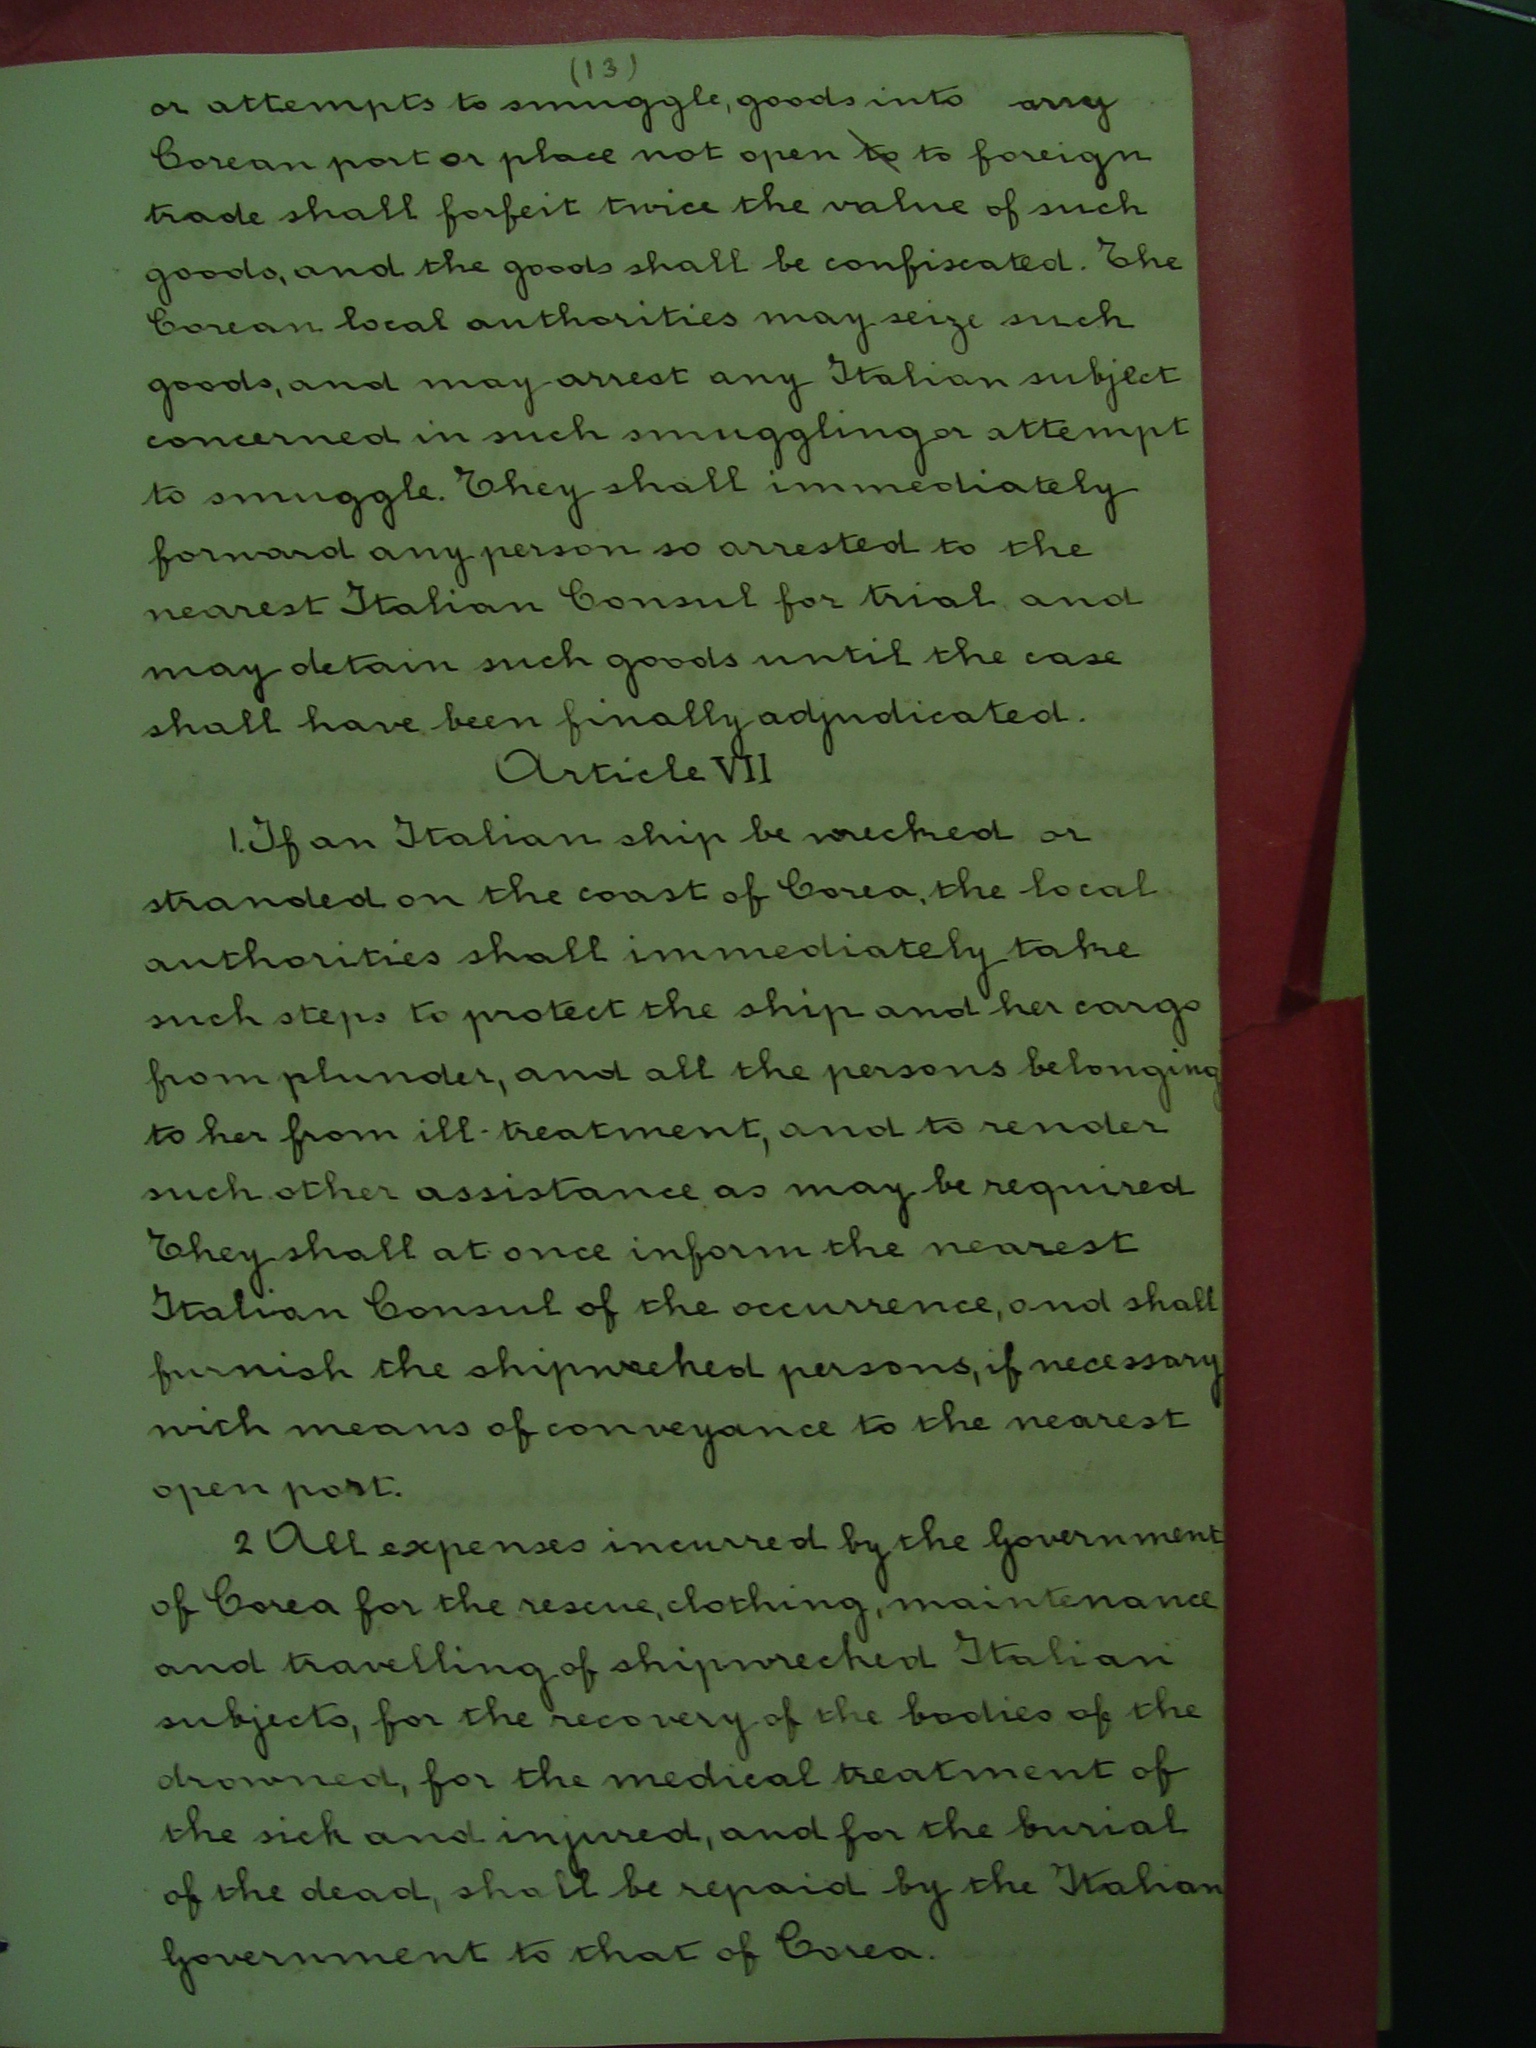 (13)
or attempts to smuggle, goods into any
Corean port or place not open to to foreign
trade shall forfeit twice the value of such
goods, and the goods shall be confiscated. The
Corean local authorities may seize such
goods, and may arrest any Italian subject
concerned in such smuggling or attempt
to smuggle. They shall immediately
forward any person so arrested to the
nearest Italian Consul for trial and
may detain such goods until the case
shall have been finally adjudicated.
Article VII
1. If an Italian ship be wrecked or
stranded on the coast of Corea, the local
authorities shall immediately take
such steps to protect the ship and her cargo
from plunder, and all the persons belonging
to her from ill-treatment, and to render
such other assistance as may be required
They shall at once inform the nearest
Italian Consul of the occurrence, and shall
furnish the shipwrecked persons, if necessary
with means of conveyance to the nearest
open port.
2 All expenses incurred by the Government
of Corea for the rescue, clothing, maintenance
and travelling of shipwrecked Italian
subjects, for the recovery of the bodies of the
drowned, for the medical treatment of
the sick and injured, and for the burial
of the dead, shall be repaid by the Italian
Government to that of Corea.